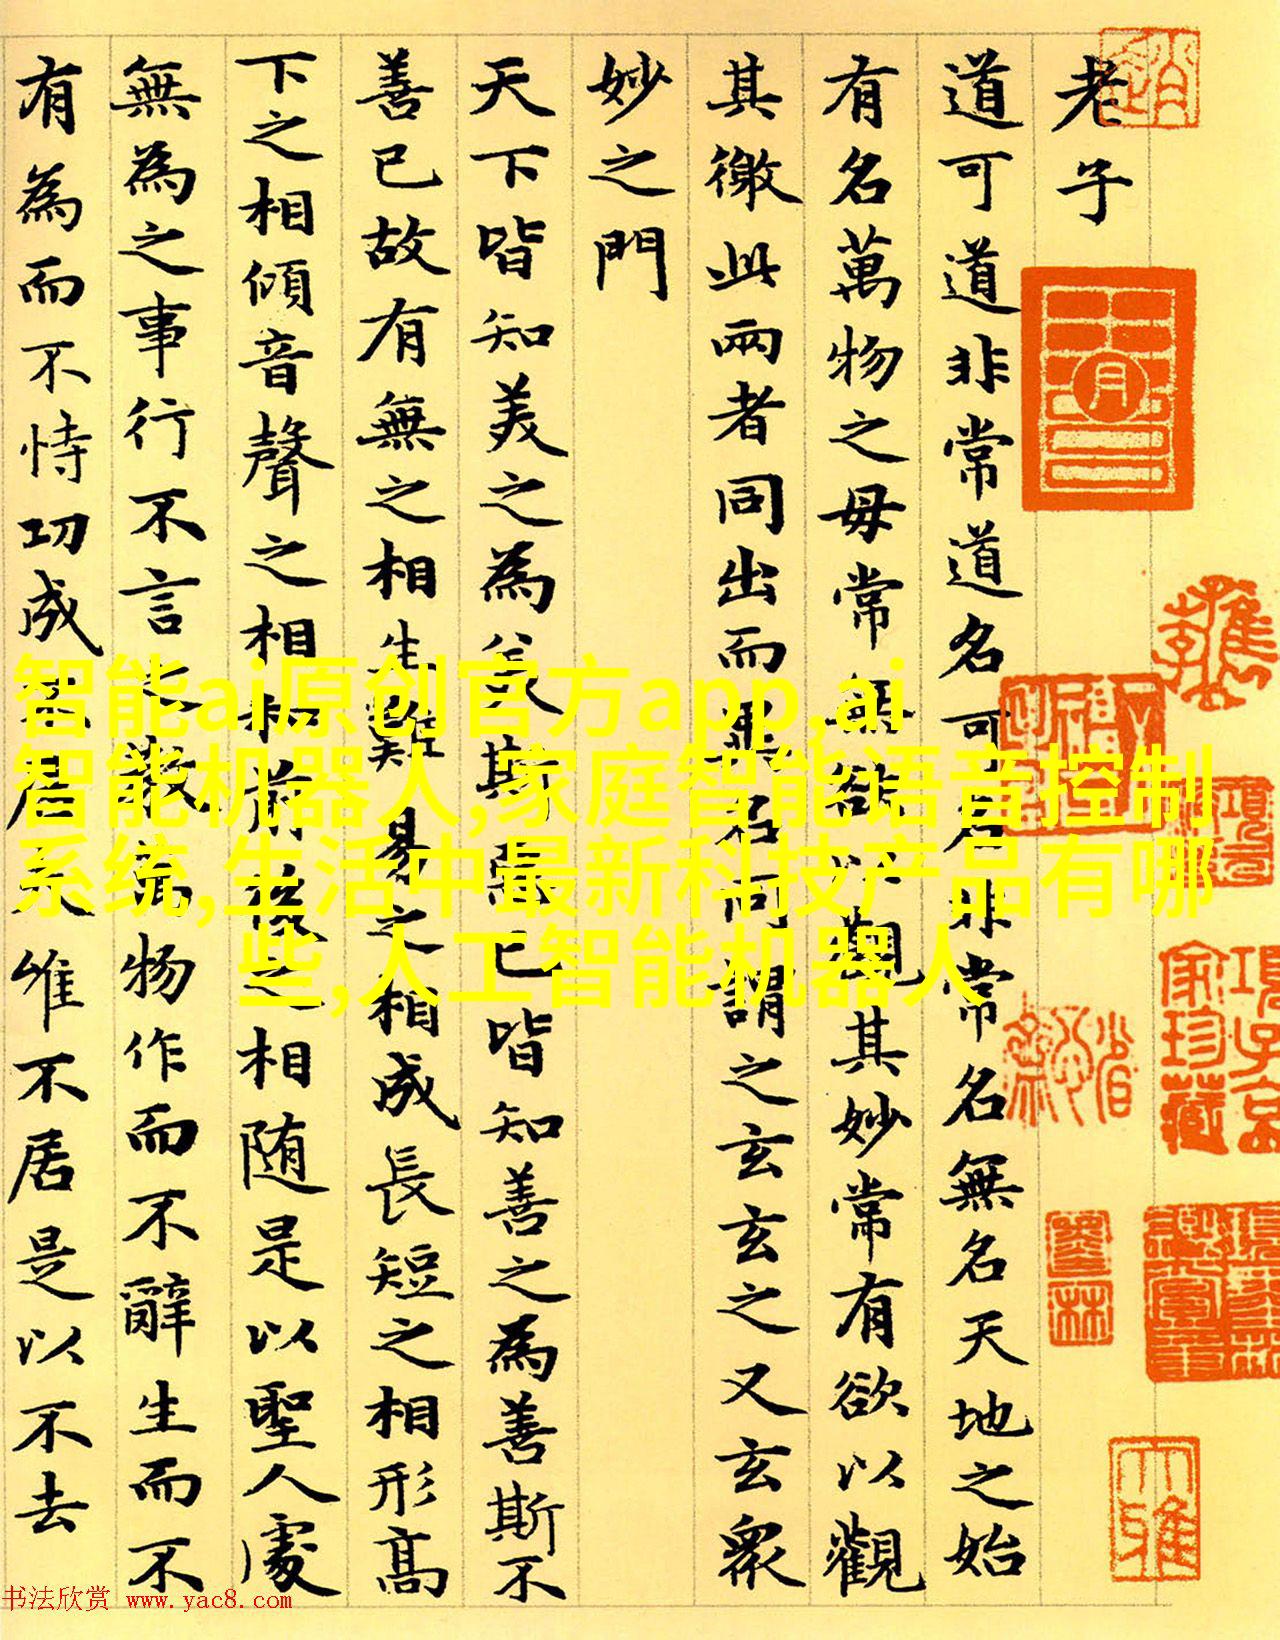 老子
道可道非常道名可名非常名無名天地之始
有名萬物之母常無欲以觀其妙常有欲以觀
其徼此兩者同出而異名同謂之玄玄之又玄衆
妙之門
天下皆知美之為美斯惡已皆知善之為善斯不
善已故有無之相生難易之相成長短之相形高
下之相傾音聲之相和前後之相随是以聖人處
無為之事行不言之教萬物作而不辭生而不
有為而不恃功成不居夫唯不居是以不去
智能ai原创官方app,ai
智能机器人,家庭智能语音控制
系统,生活中最新科技产品有哪
些,人工智能机器人
项子京
家珍藏
书法欣赏 www.yac8.com